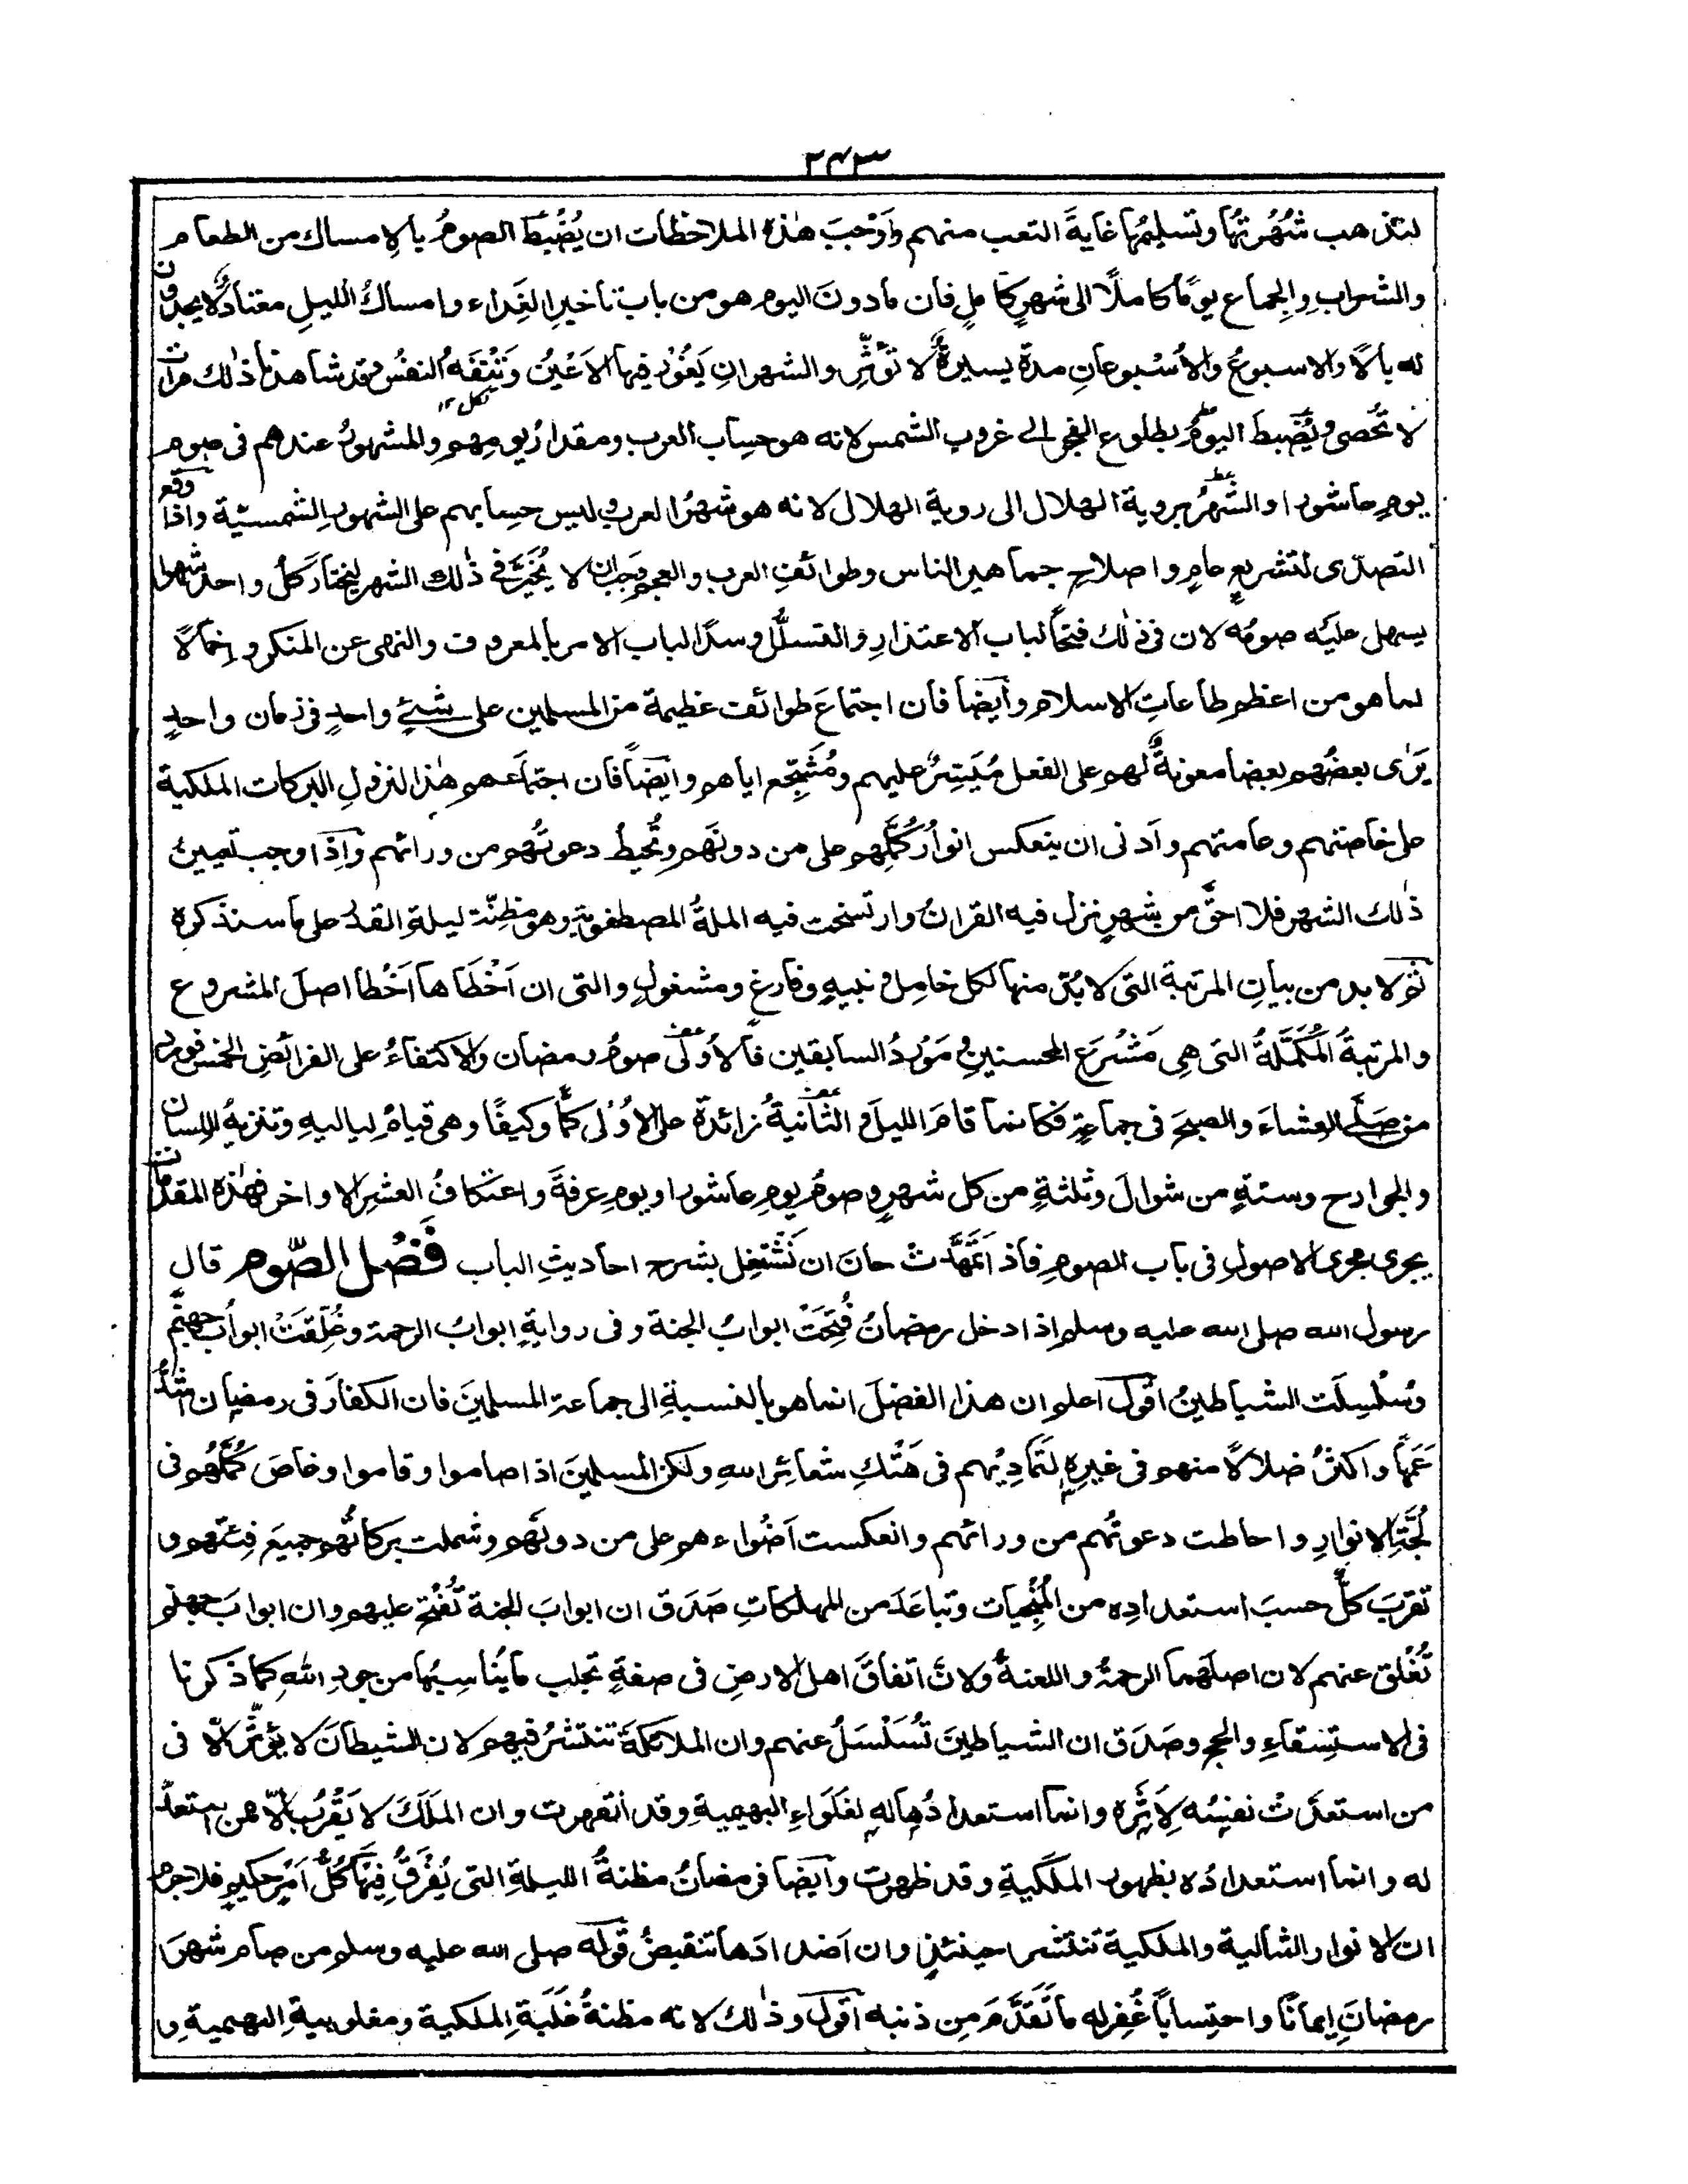 ٢٤٣
لتذهب شَهْرتُها وتسليمُها غايةَ التعب منهم وأوْجَبَ هٰذه الملاحظات ان يُضْبَطَ الصومُ بالاِمساك من الطعام
والشرابِ والجِماع يومًا كاملًا الى شهرٍ كاملٍ فان مادونَ اليوم هو من باب تاخيرِ الغَداء وامساكُ الليلِ معتادٌ لا يجدون
له بالًا والاسبوعُ والاُسْبوعانِ مدةٌ يسيرةٌ لا تؤثِّر والشهرانِ يَغُوْر فيها الاَعْيُنُ وتَنْفَهُ النفسُ وقد شاهدنا ذٰلك مرات
تكل ١٢
لا تُحصى ويُضْبط اليومُ بطلوع الفجر الى غروب الشمس لانه هو حسابُ العرب ومقدارُ يومِهم والمشهورُ عندهم فى صوم
يومِ عاشورا والشهرُ بروية الهلال الى روية الهلال لانه هو شهرُ العرب وليس حسابهم على الشهورِ الشمسيّة واذا وقع
التصدّى لتشريعٍ عامٍ واصلاحِ جماهير الناس وطوائفِ العرب والعجم وجب ان لا يُخَيَّرَ فى ذٰلك الشهر ليختارَ كلُّ واحد شهرا
يسهل عليه صومُه لان فى ذٰلك فتحًا لباب الاعتذارِ والتسلُّل وسدًّا لباب الامر بالمعروف والنهى عن المنكر واخمالًا
لما هو من اعظم طاعاتِ الاسلام وأيضا فان اجتماعَ طوائف عظيمة من المسلمين على شئٍ واحدٍ فى زمان واحدٍ
يَرٰى بعضُهم بعضا معونةٌ لهم على الفعل مُيَسِّرٌ عليهم ومُشَجِّع اياهم وايضًا فان اجتماعهم هٰذا لنزولِ البركات الملكية
على خاصتهم وعامتهم وأدنى ان ينعكس انوارُ كُمَّلِهم على من دونَهم وتُحيطُ دعوتُهم من ورائهم واذا وجب تعيينُ
ذٰلك الشهر فلا احقَّ من شهرٍ نزل فيه القرانُ وارتسخت فيه الملةُ المصطفوية وهو مَظِنّة ليلةِ القدر على ما سنذكره
ثم لا بد من بيانِ المرتبة التى لا بُدّ منها لكل خاملٍ و نبيهٍ وفارغٍ ومشغولٍ والتى ان أخْطَأها أخْطأ اصلَ المشروع
والمرتبةِ المُكَمَّلةُ التى هى مَشْرَعُ المحسنين و مَوْرِدُ السابقين فالاُوْلٰى صومُ رمضان والاكتفاءُ على الفرائضِ الخمس فورد
من صَلَّى العشاءَ والصبحَ فى جماعةٍ فكانما قامَ الليلَ و الثانيةُ زائدة على الاُوْلٰى كمًّا وكيفًا وهى قيامُ لياليهِ وتنزيهُ اللسان
والجوارح وستةٍ من شوالَ وثلثةٍ من كل شهرٍ وصومُ يومِ عاشورا ويومِ عرفةَ واعتكافُ العشرِ الاواخر فهٰذه المقدمات
يجرى مجرى الاصول فى باب الصوم فاذ اتَمَهَّدتْ حانَ ان نَشْتَغِل بشرح احاديثِ الباب فَضْل الصّوم قال
رسول الله صلى الله عليه وسلم اذا دخل رمضانُ فُتِحَتْ ابوابُ الجنة وفى روايةٍ ابوابُ الرحمة وغُلِّقَتْ ابوابُ جهنّم
وسُلْسِلَت الشياطينُ اقول اعلم ان هذا الفضلَ انما هو بالنسبةِ الى جماعة المسلمينَ فان الكفارَ فى رمضان اشدُّ
عَمَهًا واكثرُ ضلالًا منهم فى غيرِهٖ لتَمَادِيْهم فى هَتْكِ شعائرِ اللهِ ولكن المسلمينَ اذا صاموا وقاموا وغاصَ كُمَّلُهم فى
لُجَّةِ الانوارِ واحاطت دعوتُهم من ورائهم وانعكست اَضْواءهم على من دونَهم وشملت بركاتُهم جميعَ فِئَتهم و
تقربَ كلٌّ حسبَ استعدادِه من المُنْجيات وتباعَدَ من المهلكاتِ صَدَق ان ابوابَ الجنة تُفْتح عليهم وان ابوابَ جهنم
تُغْلق عنهم لان اصلَهما الرحمةُ واللعنةُ ولانّ اتفاقَ اهلِ الارضِ فى صفةٍ تجلب ما يُناسِبُها من جودِ اللهِ كما ذكرنا
فى الاستِسْقاءِ والحج وصَدَق ان الشياطينَ تُسَلْسَلُ عنهم وان الملائكةَ تنتشرُ فيهم لان الشيطانَ لا يؤثِّر الّا فى
من استعدّتْ نفسُه لِأَثَرِه وانما استعدادُها له لغَلَواءِ البهيميةِ وقد انقهرت وان المَلَكَ لا يَقْرُب الّا ممن استعدّ
له وانما استعدادُه بظهورِ المَلَكيةِ وقد ظهرت وأيضا فرمضانُ مظنةُ الليلةِ التى يُفْرَقُ فِيْهَا كُلُّ اَمْرٍ حكيم فلاجرم
ان الانوار المثالية والملكية تنتشر حينئذٍ وان اَضدادَها تنقبضُ قوله صلى الله عليه وسلم من صام شهرَ
رمضانَ ايمانًا واحتسابًا غُفِر له ما تَقَدَّمَ مِن ذنبه اقول وذٰلك لانه مظنةُ غَلَبَةِ الملكية ومغلوبيةِ البهيمية و